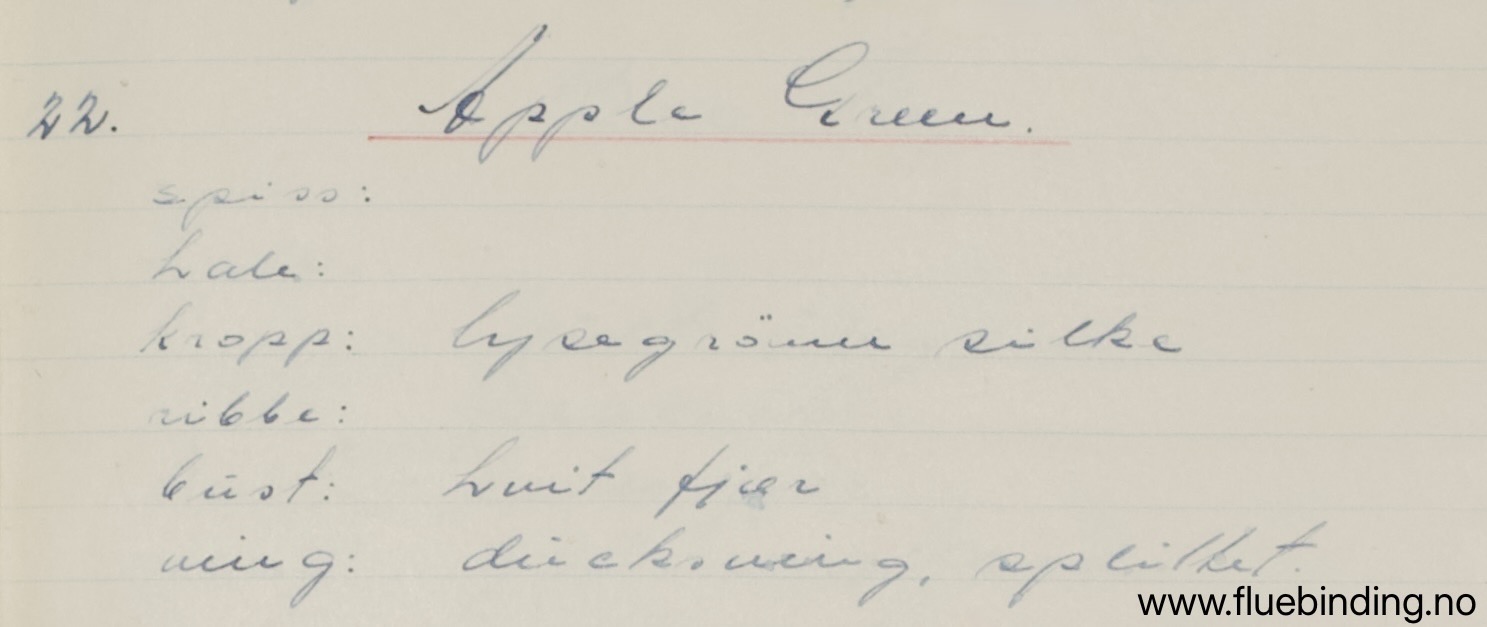 22. Apple Green.
spiss:
hale:
kropp: lysegrönn silke
ribbe:
bust: hvit fjær
ving: duckswing, splittet.
www.fluebinding.no